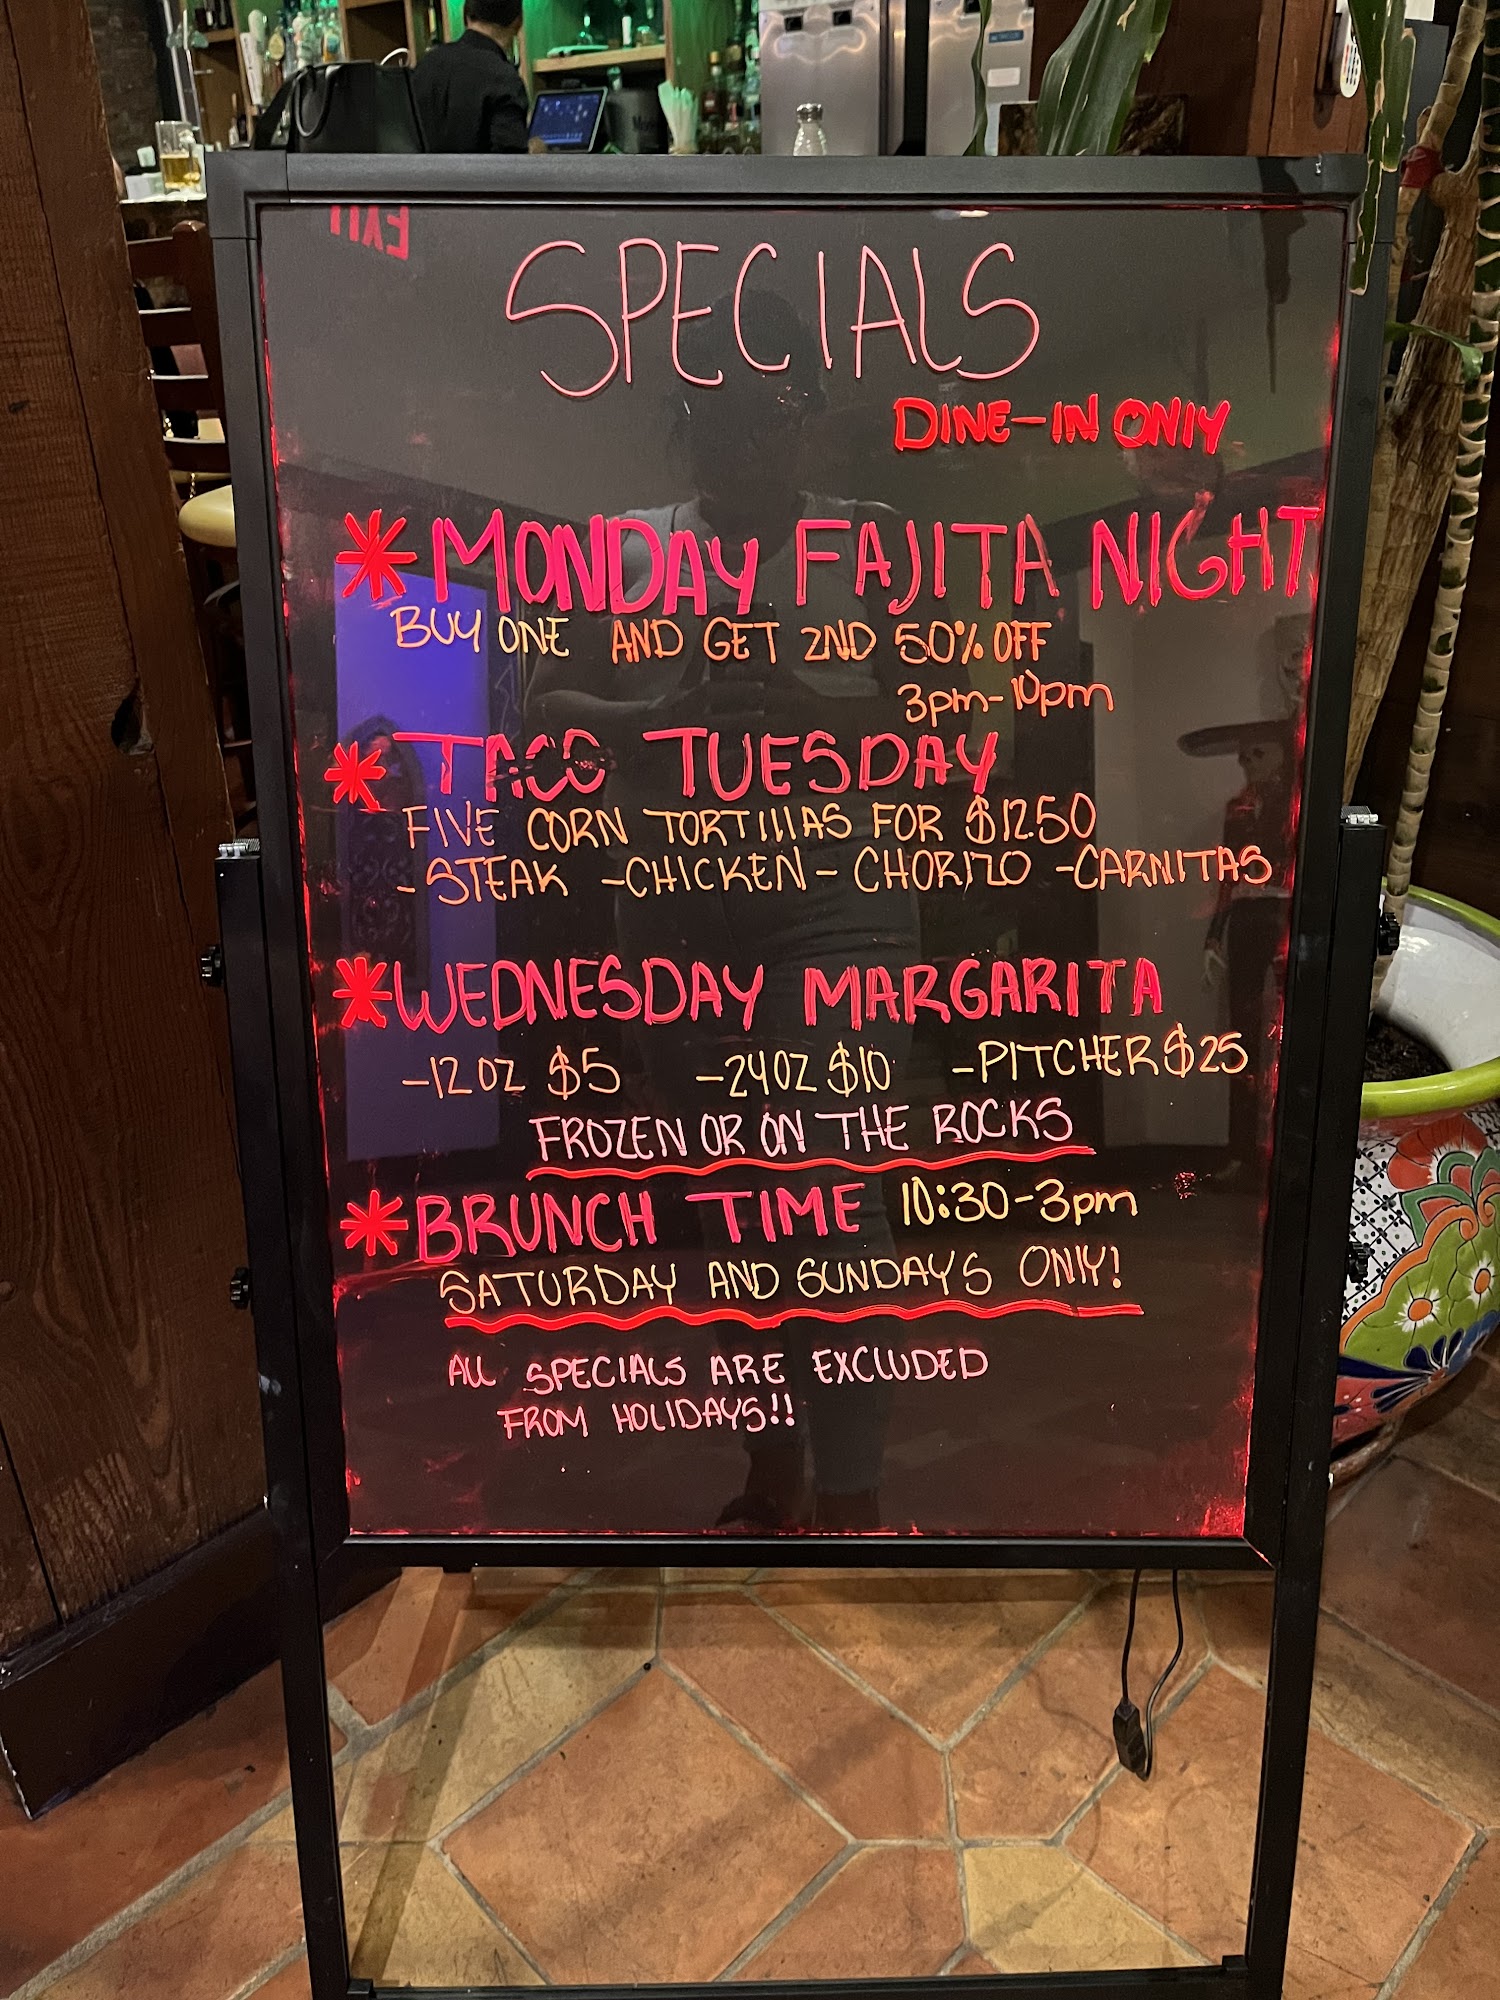 EXIT
SPECIALS
DINE-IN ONLY
* MONDAY FAJITA NIGHT
BUY ONE AND GET 2ND 50% OFF
3pm-10pm
* TACO TUESDAY
FIVE CORN TORTILLAS FOR $12.50
-STEAK -CHICKEN - CHORIZO -CARNITAS
* WEDNESDAY MARGARITA
-12OZ $5 -24OZ $10 -PITCHER $25
FROZEN OR ON THE ROCKS
* BRUNCH TIME 10:30-3pm
SATURDAY AND SUNDAYS ONLY!
ALL SPECIALS ARE EXCLUDED
FROM HOLIDAYS!!